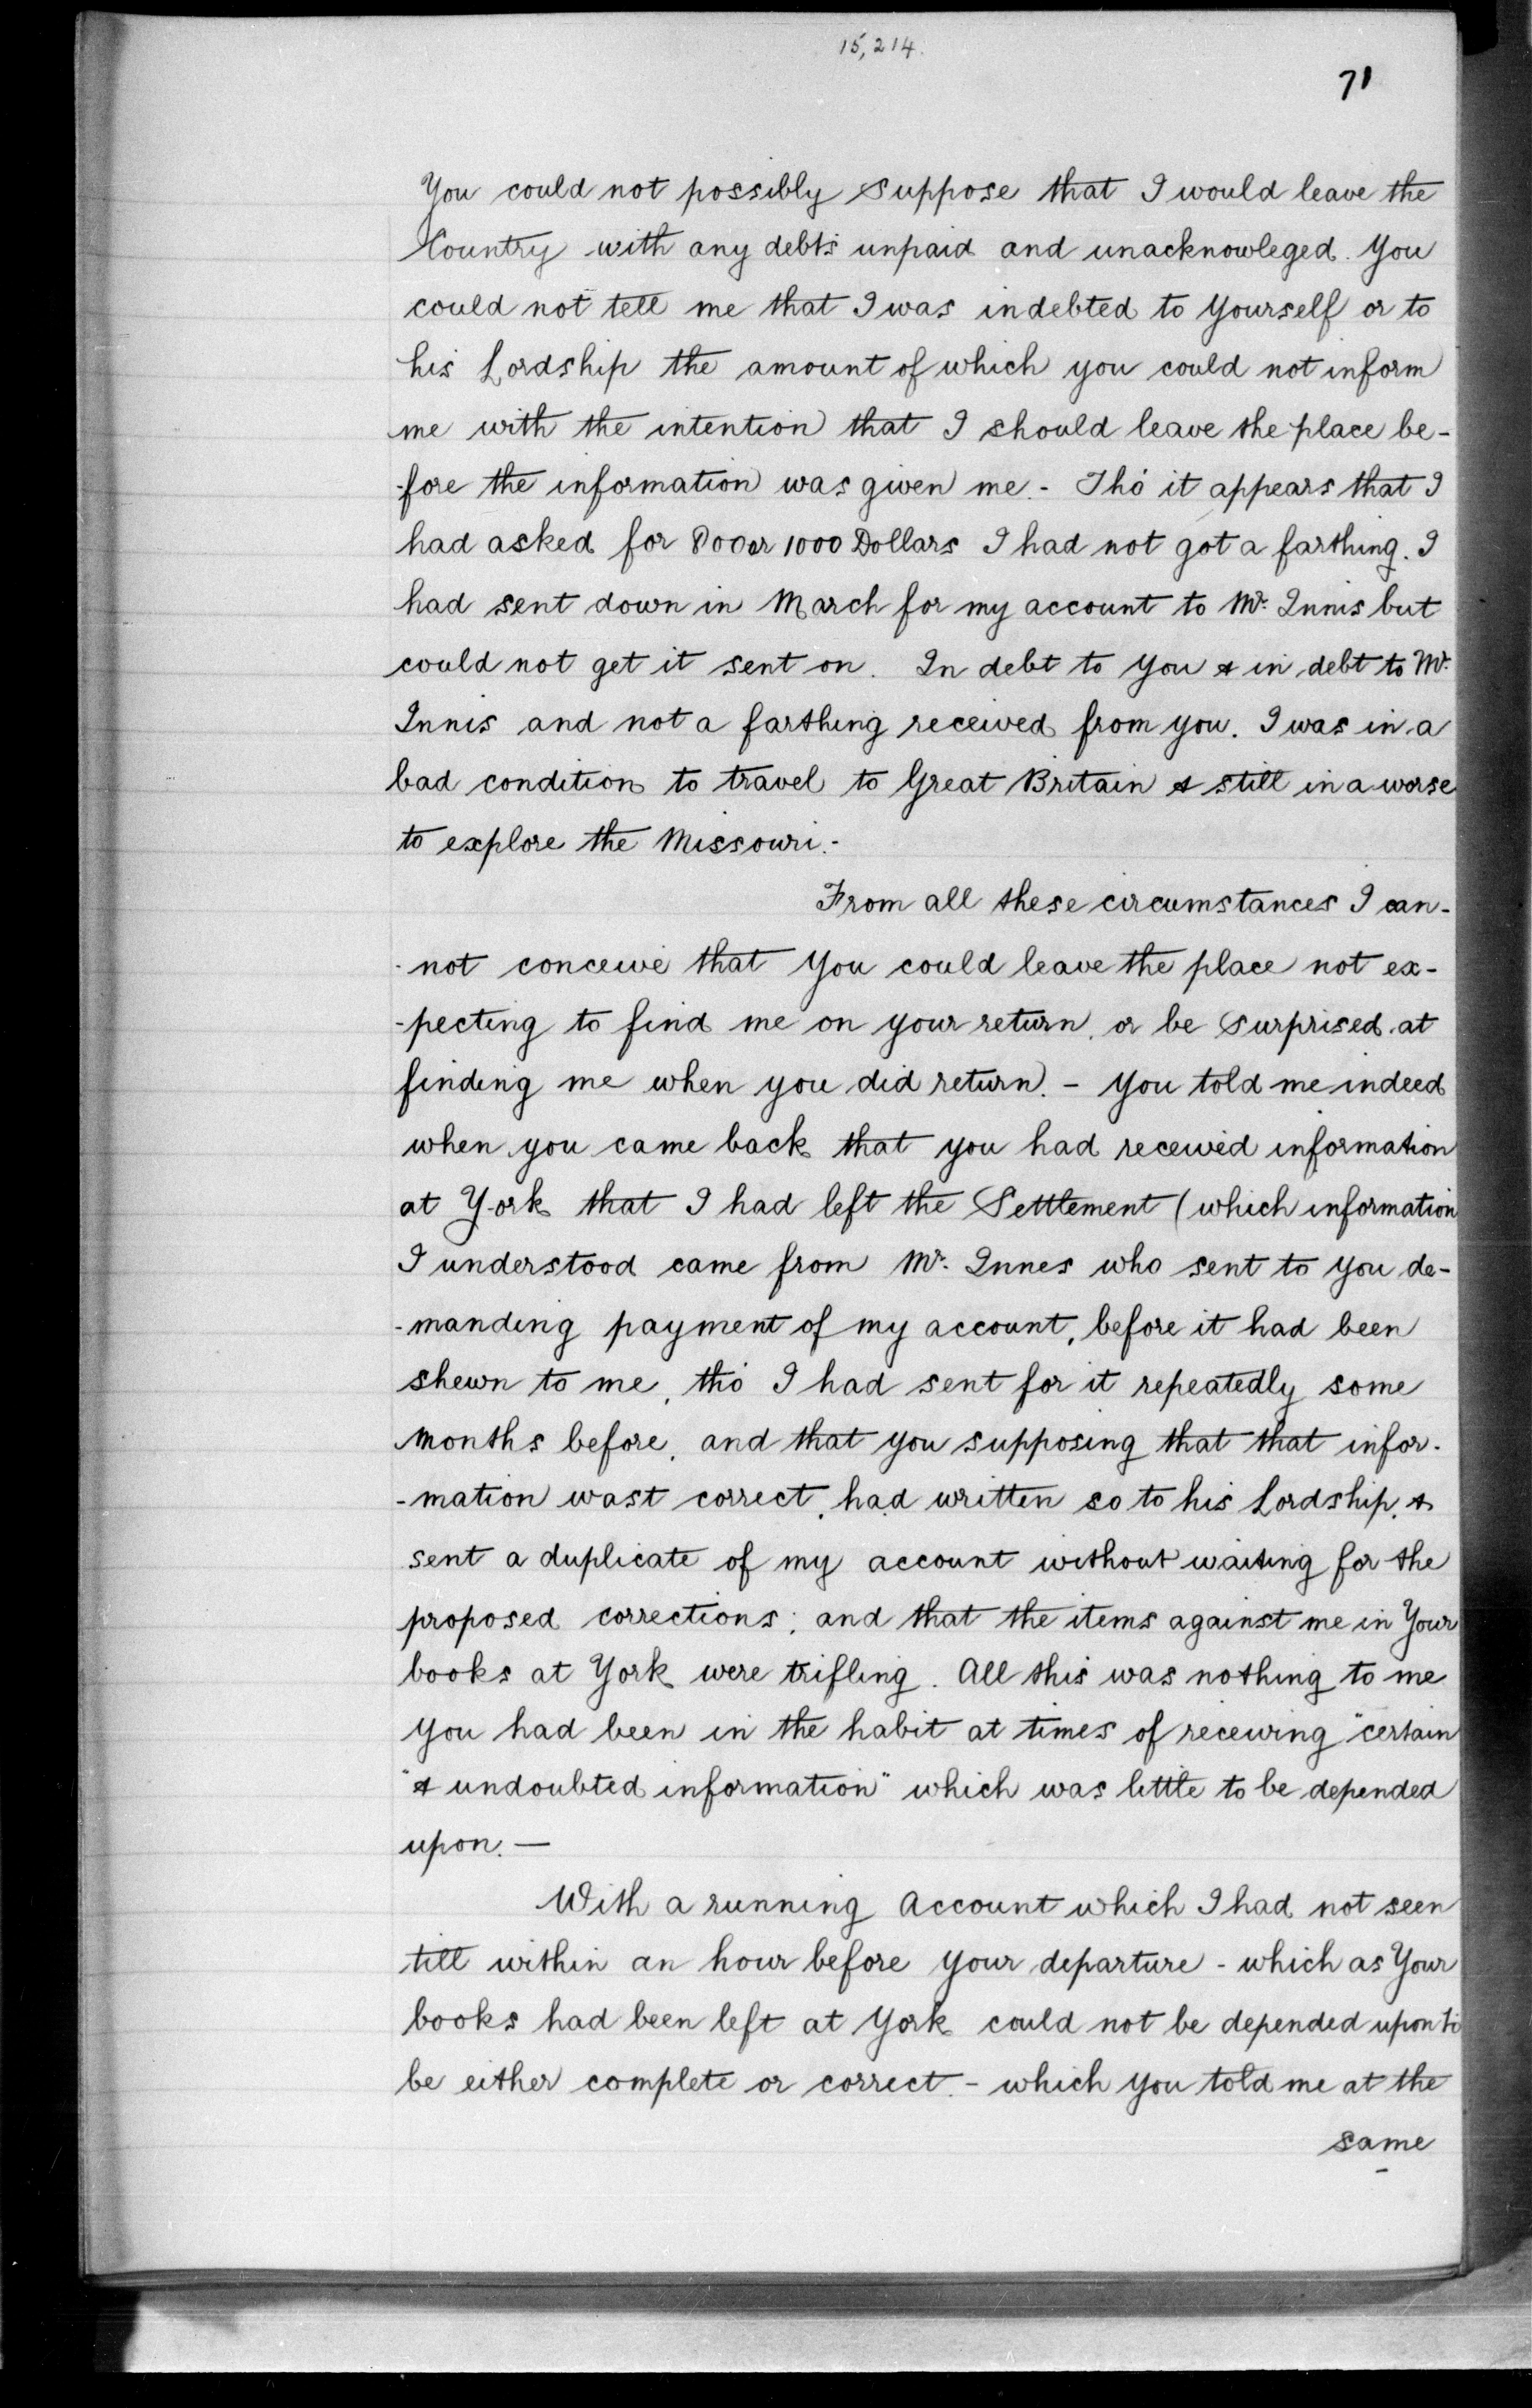 15,214.
71
You could not possibly suppose that I would leave the
Country with any debts unpaid and unacknowleged. You
could not tell me that I was indebted to yourself or to
his Lordship the amount of which you could not inform
me with the intention that I should leave the place be-
-fore the information was given me. - Tho' it appears that I
had asked for 800 or 1000 Dollars I had not got a farthing. I
had sent down in March for my account to Mr. Innis but
could not get it sent on. In debt to you & in debt to Mr.
Innis and not a farthing received from you. I was in a
bad condition to travel to Great Britain & still in a worse
to explore the Missouri. -
From all these circumstances I can-
-not conceive that you could leave the place not ex-
-pecting to find me on your return, or be surprised at
finding me when you did return. - you told me indeed
when you came back that you had received information
at York that I had left the Settlement (which information
I understood came from Mr. Innes who sent to you de-
-manding payment of my account, before it had been
shewn to me, tho' I had sent for it repeatedly some
months before, and that you supposing that that infor-
-mation wast correct, had written so to his Lordship, &
sent a duplicate of my account without waiting for the
proposed corrections; and that the items against me in Your
books at York were trifling. All this was nothing to me
you had been in the habit at times of receiving "certain
"& undoubted information" which was little to be depended
upon. —
With a running Account which I had not seen
till within an hour before your departure - which as Your
books had been left at York could not be depended upon to
be either complete or correct. - which you told me at the
same